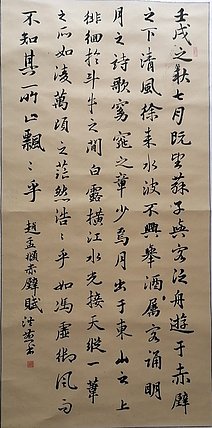 壬戌之秋七月既望蘇子與客泛舟遊于赤壁
之下清風徐来水波不興舉酒屬客誦明
月之詩歌窈窕之章少焉月出于東山之上
徘徊於斗牛之間白露橫江水光接天縱一葦
之所如凌萬頃之茫然浩〻乎如馮虛御風而
不知其所止飄〻乎
趙孟頫赤壁賦